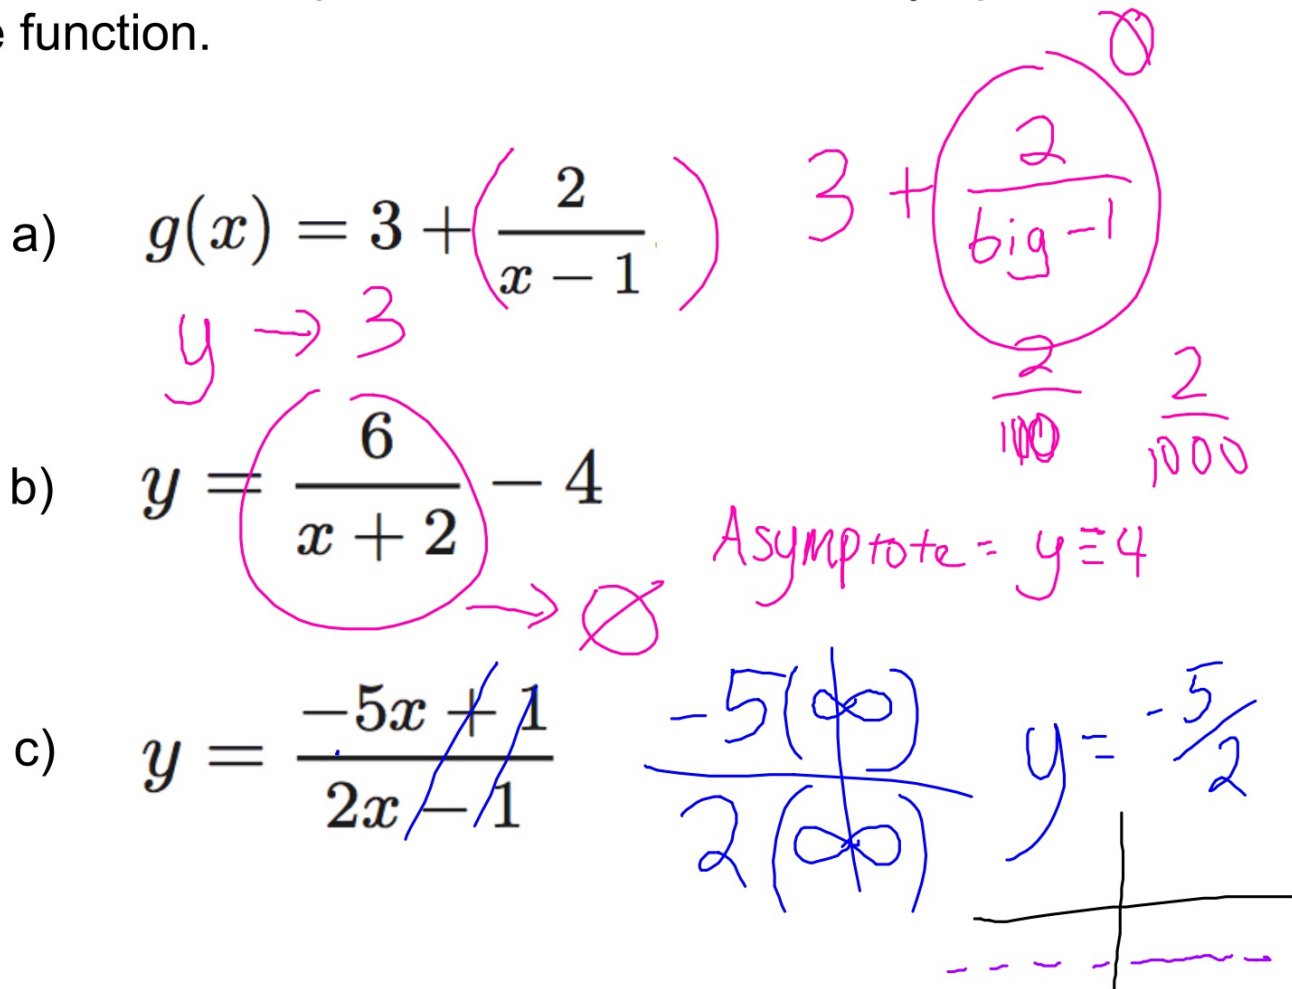 function.
a) g(x) = 3 + ( 2/(x − 1) ) 3 + 2/(big −1) 0
y → 3
2/100 2/1000
b) y = 6/(x + 2) − 4
→ 0
Asymptote = y = -4
c) y = (−5x + 1)/(2x − 1) -5(∞)/2(∞) y = -5/2